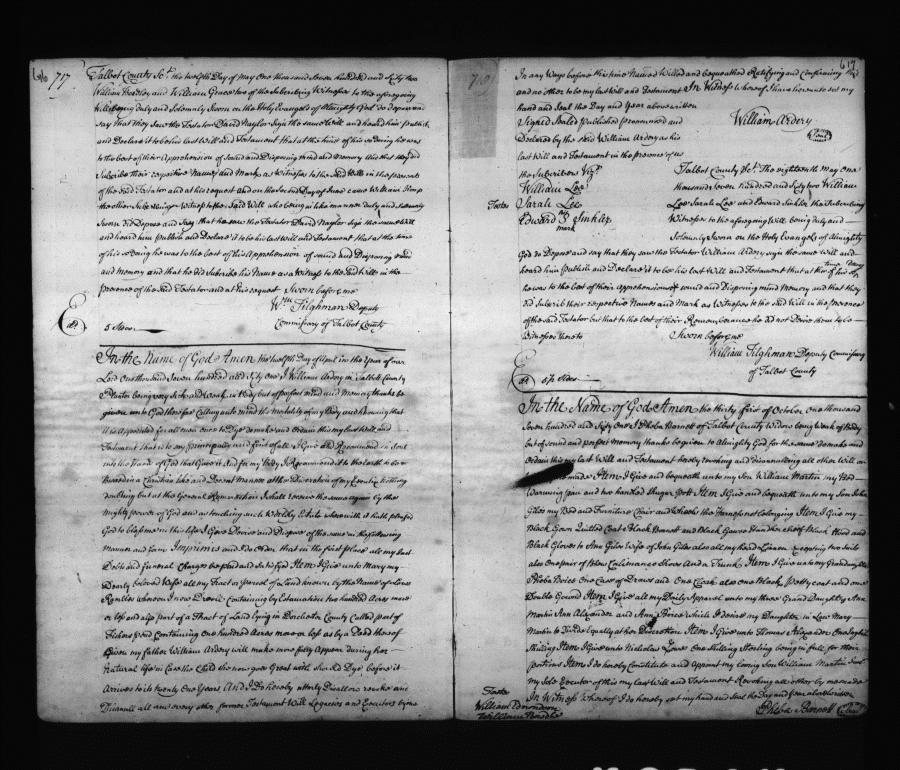 616 717
Talbot County Sct. this twelfth Day of May One thousand Seven hundred and Sixty two
William Hindley and William Grace two of the Subscribing Witnesses to the aforegoing
Will being duly and Solemnly Sworn on the Holy Evangels of Almighty God do Depose and
say that they saw the Testator David Naylor sign the same Will and heard him Publish
and Declare it to be his last Will and Testament that at the time of his so doing he was
to the best of their Apprehension of sound and Disposing mind and Memory and that they did
Subscribe their respective Names and Mark as Witnesses to the said Will in the presence
of the said Testator and at his request And on the Second Day of June came William
the other Subscribing Witness to the said Will who being in like manner duly and solemnly
Sworn Did Depose and Say that he saw the Testator David Naylor sign the same Will
and heard him publish and Declare it to be his last Will and Testament that at the time
of his so doing he was to the best of his Apprehension of sound and Disposing mind
and Memory and that he did subscribe his Name as a Witness to the said Will in the
presence of the said Testator and at his request Sworn before me
Wm Tilghman Deputy
Commissary of Talbot County
Ed 5 Sides
In the Name of God Amen the twelfth Day of April in the Year of our
Lord One thousand Seven hundred and Sixty One I William Ardery in Talbott County
Planter being very Sick and Weak in Body but of perfect Mind and Memory thanks be
given unto God therefore Calling unto mind the Mortality of my Body and knowing that
it is Appointed for all men once to Dye do make and Ordain this my last Will and
Testament that is to say principally and first of all I Give and Recommend in Soul
into the Hand of God that Gave it And for my Body I Recommend it to the Earth to be
Buried in a Christian like and Decent manner at the Discretion of my Exectrs Nothing
doubting but at the General Resurrection I shall receive the same again by the
mighty power of God and as touching such Worldly Estate wherewith it hath pleased
God to bless me in this life I Give Devise and Dispose of the same in the following
Manner and form Imprimis and I do Order that in the first place all my Just
Debts and funeral Charges be paid and Satisfied Item I Give unto Mary my
Dearly beloved Wife all my Tract or parcel of Land known by the Name of Lows
Rambles whereon I now Dwell Containing by Estimation two hundred Acres more
or less and also part of a Tract of Land lying in Dorchester County Called part of
Containing one hundred Acres more or less as by a Deed thereof
Given my father William Ardery will make more fully Appear During her
natural life in Case the Child she now goes Great with Should Dye before it
Arrives to its twenty One Years And I Do hereby utterly Disallow revoke and
Disanull all and every other former Testament Will Legacies and Executors by me
617
718
In any Ways before this time Named Willed and bequeathed Ratifying and Confirming this
and no other to be my last Will and Testament In Witness whereof I have hereunto set my
hand and Seal the Day and Year above written
Signed Sealed published pronounced and
Declared by the said William Ardery as his
last Will and Testament in the presence of us
the Subscribers Vizt.
William Ardery (Seal)
Testes
William Lee
Sarah Lee
Edward his mark Sinklar
Talbot County Sct. The eighteenth May One
thousand seven hundred and Sixty two William
Lee Sarah Lee and Edward Sinklar the Subscribing
Witnesses to the aforegoing Will being duly and
Solemnly Sworn on the Holy Evangels of Almighty
God do Depose and say that they saw the Testator William Ardery sign the same Will and
heard him Publish and Declare it to be his last Will and Testament that at the time of his so doing
he was to the best of their Apprehension of sound and Disposing mind Memory and that they
did Subscrib their respective Names and Mark as Witnesses to the said Will in the presence
of the said Testator but that to the best of their Remembrance he did not Desire them to be
Witnesses thereto Sworn before me
William Tilghman Deputy Commissary
of Talbot County
Ed 5½ Sides
In the Name of God Amen the thirty first of October One thousand
Seven hundred and Sixty One I Pheba Barnett of Talbot County Widow being weak of Body
but of sound and perfect Memory thanks be given to Almighty God for the same do make and
Ordain this my last Will and Testament hereby revoking and disannulling all other Will or
made Item I Give and bequeath unto my Son William Martin my Bed
Warming pan and two hundred Item I Give and bequeath unto my Son John
Giles my Bed and Furniture Chair and the Harness belonging Item I Give my
Black Gown Quilted Coat Black Bonnett and Black Gauze Handkerchief Black Hood and
Black Gloves to Ann Giles Wife of John Giles also all my head Linnen Excepting two Suits
also One pair of Calimanco Shoes And a Trunk Item I Give unto my Granddaughter
Pheba Price One Case of Draws and One Cloak also One Black Petty coat and one
Double Gound Item I Give all my Daily Apparel unto my three Grand Daughters Ann
Martin Ann Alexander and Ann Price which I desire my Daughter in Law Mary
Martin to Divide Equally at her Discretion Item I Give unto Thomas Alexander One English
Shilling Item I Give unto Nicholas One Shilling Sterling being in full for their
portions Item I do hereby Constitute and Appoint my loving Son William Martin
my Sole Executor of this my last Will and Testament Revoking all other by me made
In Witness whereof I do hereby set my hand and Seal the Day and Year above written
Pheba Barnett (Seal)
Testes
William Edmondson
William